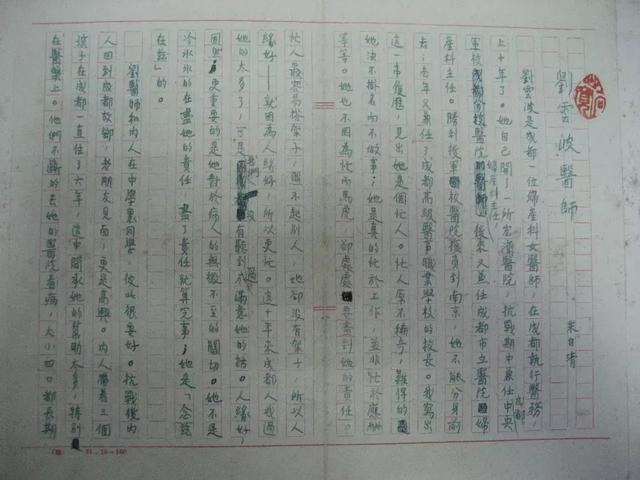 劉雲波醫師
朱自清
劉雲波是成都一位婦產科女醫師，在成都執行醫務，
上十年了。她自己開了一所宏濟醫院，抗戰期中兼任中央
軍校成都分校醫院婦產科主任，後來又兼任成都市立醫院婦
產科主任。勝利後軍校醫院復員到南京，她不能分身前
去；去年又兼任了成都高級醫事職業學校的校長。我寫出
這一串履歷，見出她是個忙人。忙人原不稀奇，難得的
她決不掛名而不做事；她是真的忙於工作，並非忙於應酬
等等。她也不因為忙而馬虎，卻處處要盡到她的責任。
忙人最容易搭架子，瞧不起別人，她卻沒有架子，所以人
緣好——就因為人緣好，所以更忙。這十年來成都人找過
她的太多了，可是我們沒有聽到過不滿意她的話。人緣好，
固然；更重要的是她對於病人的無微不至的關切。她不是
冷冰冰的在盡她的責任，盡了責任就算完事；她是「念茲
在茲」的。
劉醫師和內人在中學裏同學，彼此很要好。抗戰後內
人回到成都故鄉，老朋友見面，更是高興。內人帶着三個
孩子在成都一直住了六年，這中間承她的幫助太多，特別
在醫藥上。他們不斷的去她的醫院看病，大小四口都長期
24×20=480